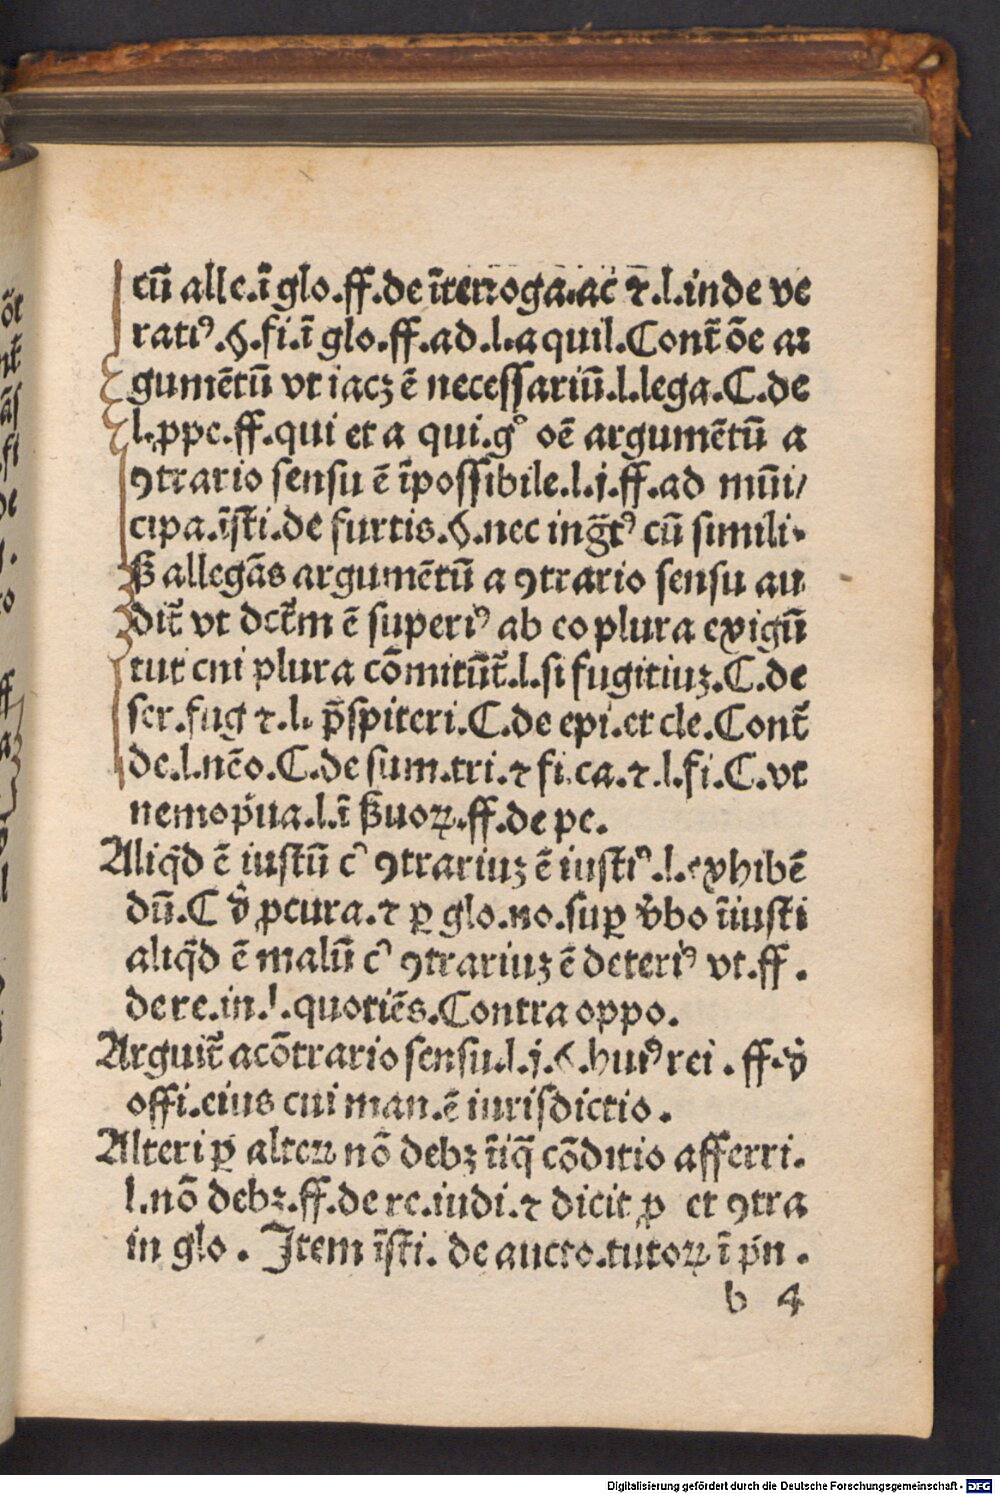 tū alle.ī glo.ff.de īterroga.ac ⁊.l.inde ve
ratiꝰ.§.fi.ī glo.ff.ad.l.aquil.Cont̄ ōe ar
gumētū vt iacꝫ ē necessariū.l.lega.C.de
l.ꝓpe.ff.qui et a qui.gͦ oē argumētū a
ꝯtrario sensu ē īpossibile.l.j.ff.ad mūi/
cipa.īsti.de furtis.§.nec inḡtꝰ cū simili.
ß allegās argumētū a ꝯtrario sensu au
dit̄ vt dct̄m ē superiꝰ ab eo plura exigū
tur cui plura cōmitūt̄.l.si fugitiuꝫ.C.de
ser.fug ⁊.l. p̄spiteri.C.de epi.et cle.Cont̄
de.l.nēo.C.de sum.tri.⁊ fi.ca.⁊.l.fi.C.vt
nemo p̛ua.l.ī ßuoꝝ.ff.de pe.
Aliq̄d ē iustū cꝰ ꝯtrariuꝫ ē iustiꝰ.l.exhibē
dū.C ꝟ ꝓcura.⁊ ꝑ glo.no.suꝑ ꝟbo īiusti
aliq̄d ē malū cꝰ ꝯtrariuꝫ ē deteriꝰ vt.ff.
de re.in.l.quotiēs.Contra oppo.
Arguit̄ acōtrario sensu.l.j.§.huiꝰ rei.ff.ꝟ
offi.eius cui man.ē iurisdictio.
Alteri ꝑ alteꝝ nō debꝫ īiq̄ cōditio afferri.
l.nō debꝫ.ff.de re.iudi.⁊ dicit ꝓ et ꝯtra
in glo. Item īsti. de aucto.tutoꝝ ī p̛n.
b 4
Digitalisierung gefördert durch die Deutsche Forschungsgemeinschaft - DFG